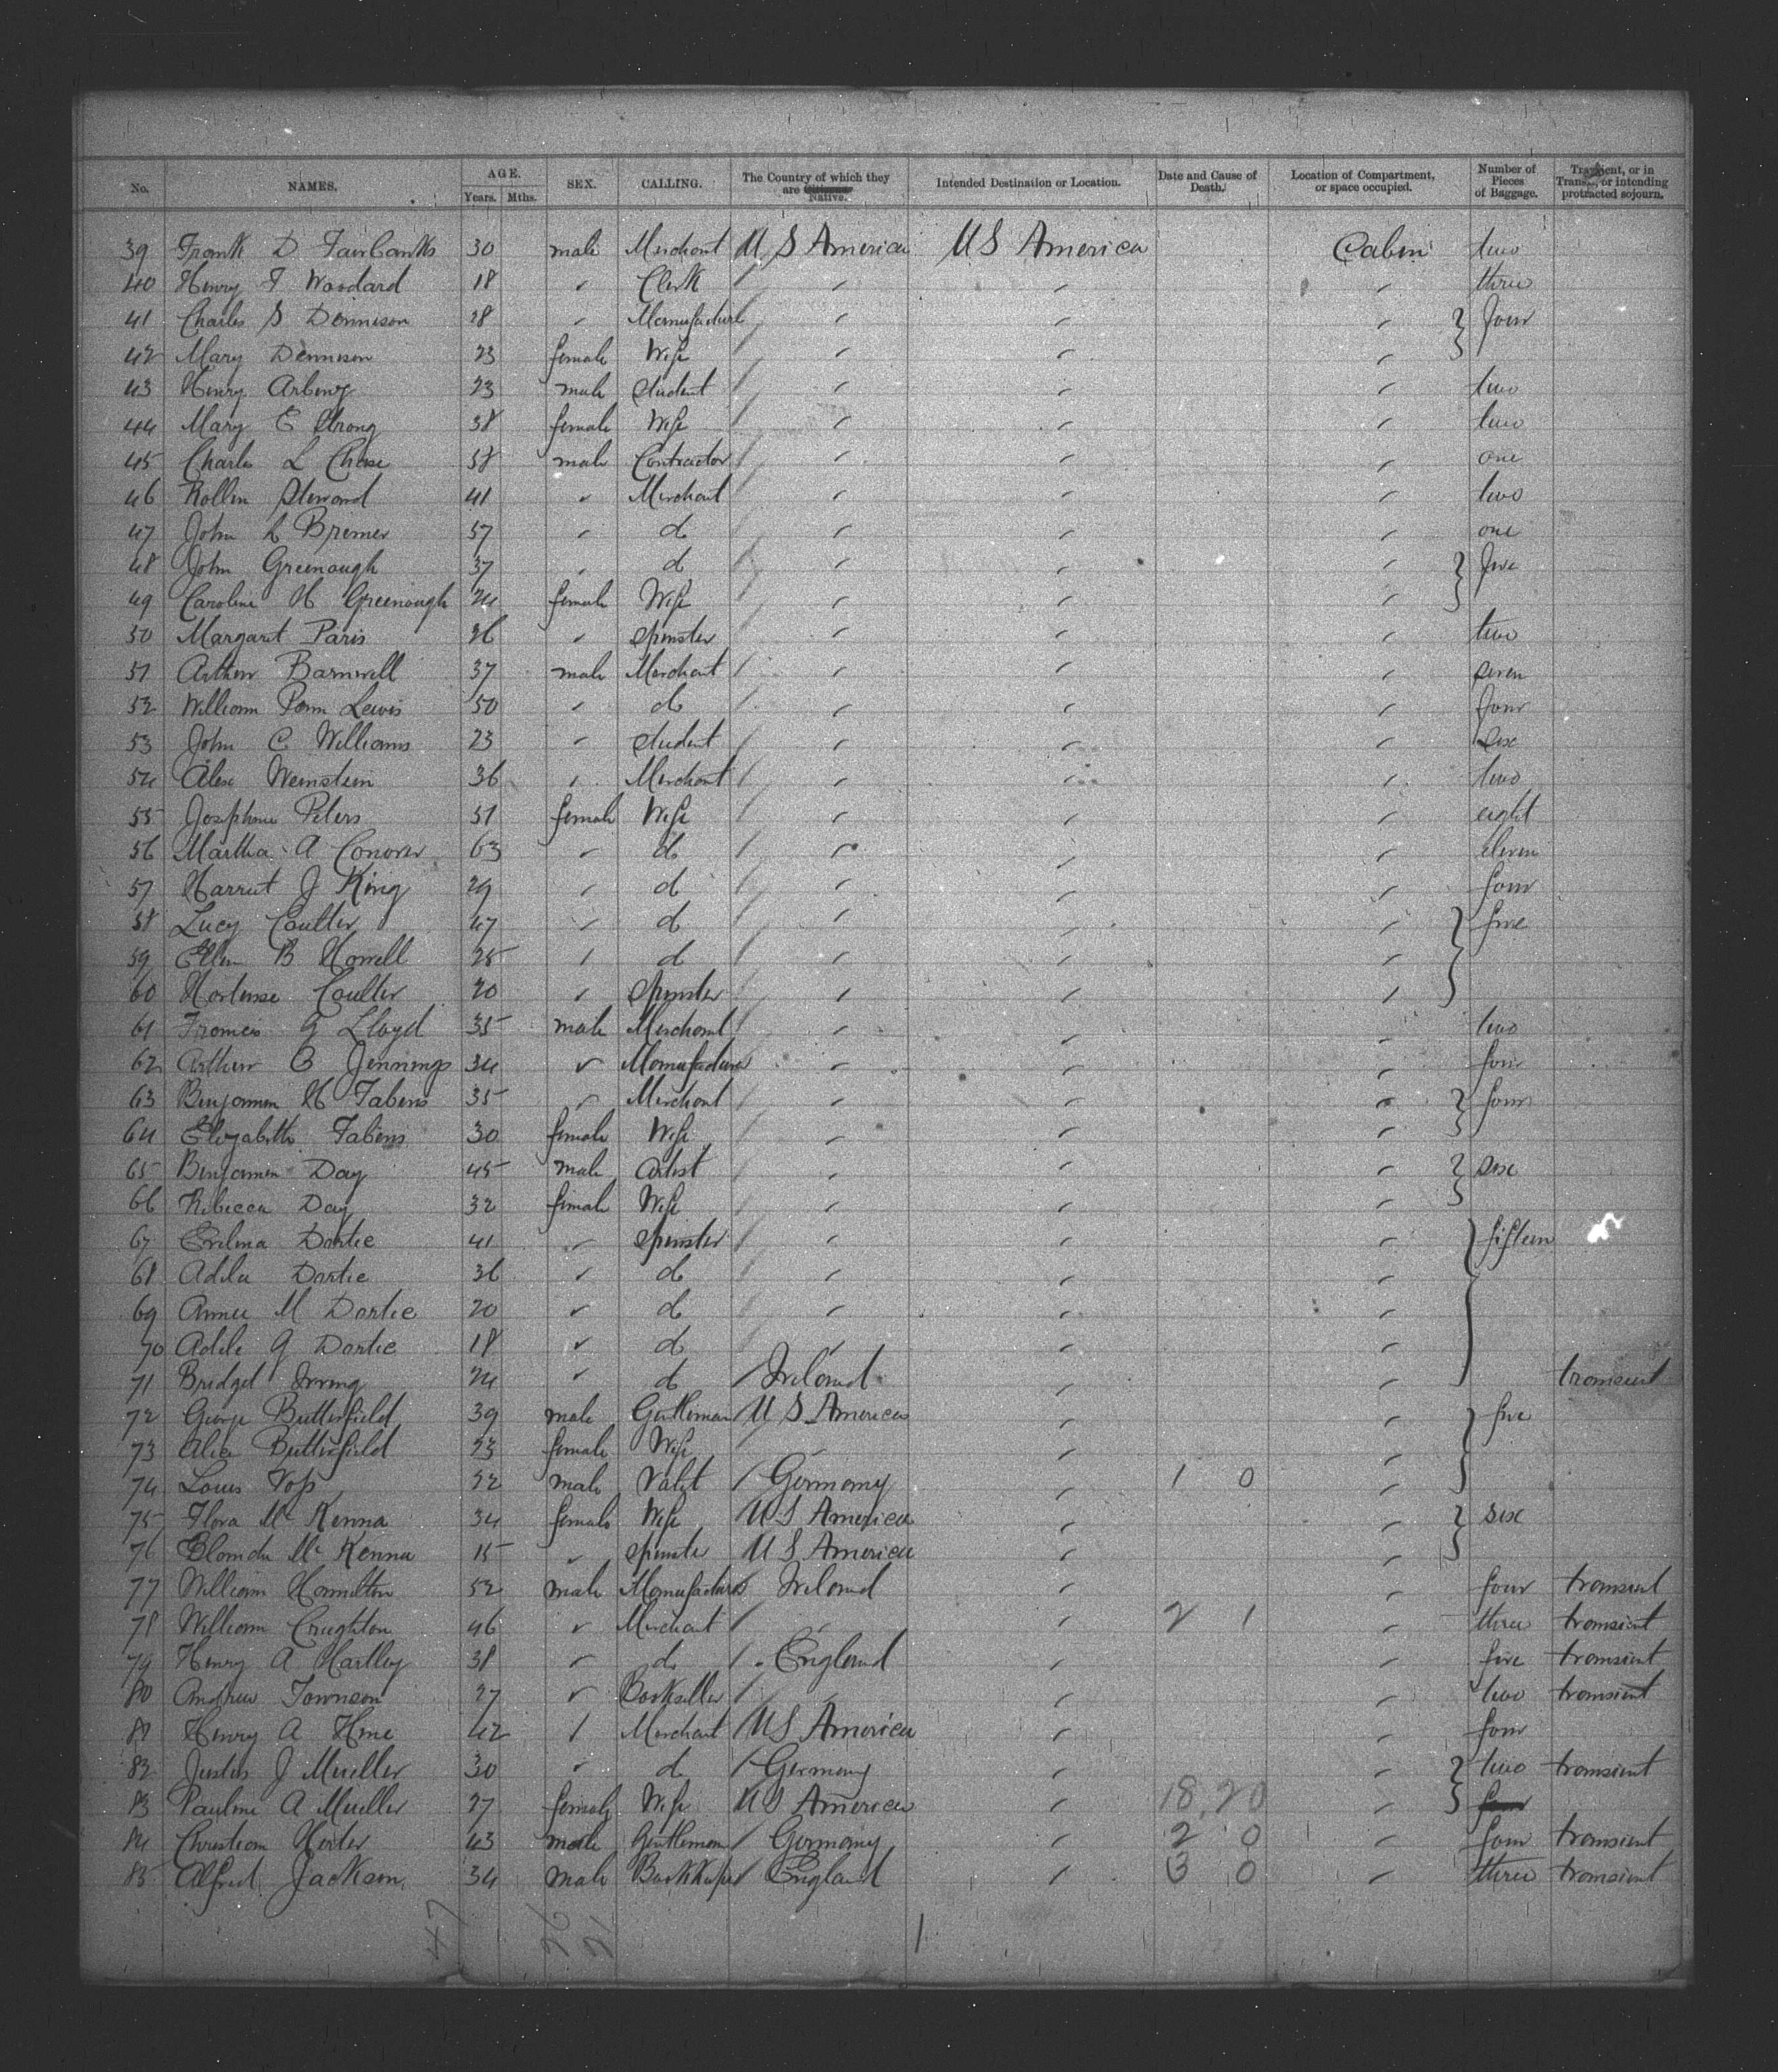 No. NAMES. AGE. Years. Mths. SEX. CALLING. The Country of which they are Native. Intended Destination or Location. Date and Cause of Death. Location of Compartment, or space occupied. Number of Pieces of Baggage. Transient, or in Transit, or intending protracted sojourn.
39 Frank D Fairbanks 30 male Merchant U S America US America Cabin two
40 Henry F Woodard 18 " Clerk " " " three
41 Charles S Dennison 28 " Manufacturer " " " four
42 Mary Dennison 23 female Wife " " "
43 Henry 23 male Student " " " two
44 Mary E Strong 38 female Wife " " " two
45 Charles L Chase 58 male Contractor " " " one
46 Rollin 41 " Merchant " " " two
47 John L Bremer 57 " do " " " one
48 John Greenough 37 " do " " " five
49 Caroline H Greenough 24 female Wife " " "
50 Margaret Paris 26 " Spinster " " " two
51 Arthur Barnwell 37 male Merchant " " " seven
52 William Penn Lewis 50 " do " " " four
53 John C Williams 23 " Student " " " six
54 Alex Weinstein 36 " Merchant " " " two
55 Josephine Peters 51 female Wife " " " eight
56 Martha A Conover 63 " do " " " eleven
57 Harriet J King 29 " do " " " four
58 Lucy Coulter 47 " do " " " five
59 Ellen B Howell 25 " do " " "
60 Hortense Coulter 20 " Spinster " " "
61 Francis G Lloyd 35 male Merchant " " " two
62 Arthur B Jennings 34 " Manufacturer " " " four
63 Benjamin H Tabers 35 " Merchant " " " four
64 Elizabeth Tabers 30 female Wife " " "
65 Benjamin Day 45 male Artist " " " six
66 Rebecca Day 32 female Wife " " "
67 Evelina Dortic 41 " Spinster " " " fifteen
68 Adila Dortic 36 " do " " "
69 Annie M Dortic 20 " do " " "
70 Adele G Dortic 18 " do " " "
71 Bridget Irving 24 " do Ireland " " transient
72 George Butterfield 39 male Gentleman U S America " " five
73 Alice Butterfield 23 female Wife " " "
74 Louis Voss 22 male Valet Germany " 1 0 "
75 Flora Mc Kenna 34 female Wife U S America " " six
76 Blanche Mc Kenna 15 " Spinster U S America " "
77 William Hamilton 52 male Manufacturer Ireland " " four transient
78 William Creighton 46 " Merchant " " 2 1 " three transient
79 Henry A Hartley 38 " do England " " five transient
80 Andrew Townson 27 " Bookseller " " " two transient
81 Henry A 42 " Merchant US America " " four
82 Justus J Mueller 30 " do Germany " " two transient
83 Pauline A Mueller 27 female Wife U S America " 18,20 "
84 Christian 43 male Gentleman Germany " 2 0 " four transient
85 Alfred Jackson 34 male Bookkeeper England " 3 0 " three transient
47 26 21